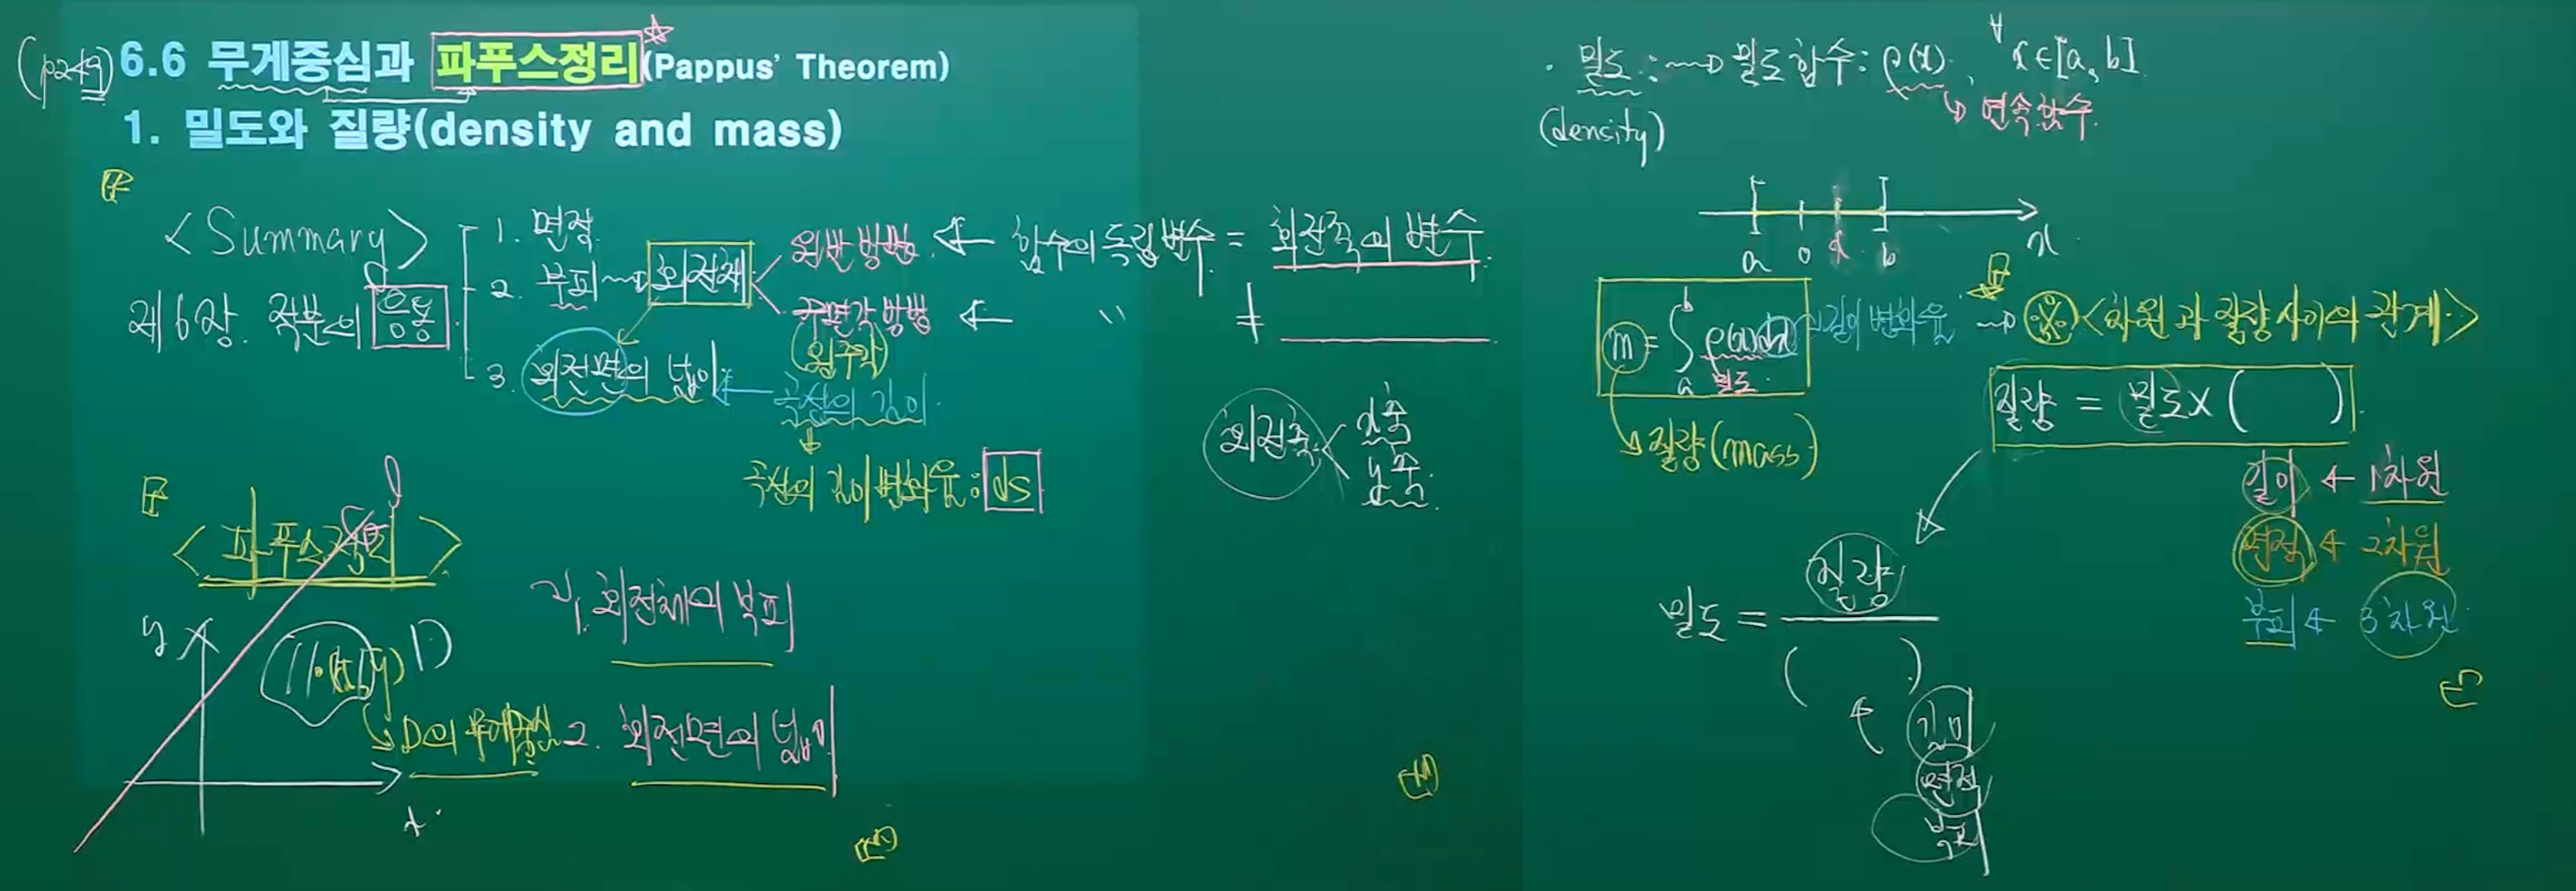 (p249) 6.6 무게중심과 파푸스정리(Pappus' Theorem)
1. 밀도와 질량(density and mass)
<Summary>
제6장. 적분의 응용
1. 면적
2. 부피 → 회전체
원반방법 ← 함수의 독립변수 = 회전축의 변수.
주면각방법 ← 〃 ≠
(원주각)
3. 회전면의 넓이 ← 곡선의 길이
곡선의 길이변화율: ds
회전축 < x축
y축.
<파푸스정리>
l
y
D
x
D의 무게중심
1. 회전체의 부피
2. 회전면의 넓이
· 밀도 : → 밀도함수: ρ(x), ∀x∈[a, b]
(density)
연속함수.
a 0 x b x
m = ∫ₐᵇ ρ(x)dx 길이변화율 → ※ <차원과 질량사이의 관계>
밀도
질량(mass)
질량 = 밀도 × ( )
길이 ← 1차원
면적 ← 2차원
부피 ← 3차원
밀도 = 질량
( )
길이
면적
부피